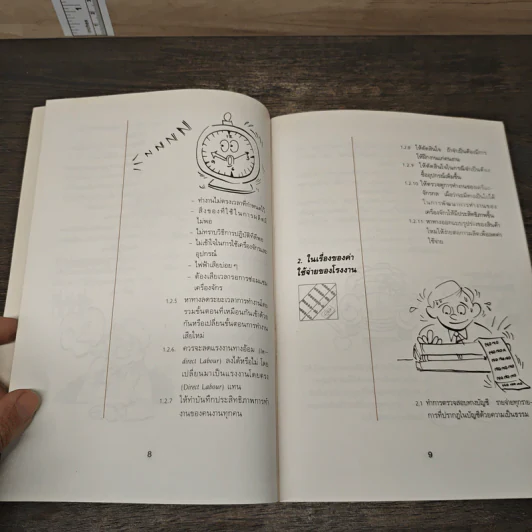 NNNNN
- ทำงานไม่ตรงเวลาที่กำหนดไว้
- สิ่งของที่ใช้ในการผลิตมี
ไม่พอ
- ไม่ทราบวิธีการปฏิบัติที่ดีพอ
- ไม่เข้าใจในการใช้เครื่องและ
อุปกรณ์
- ไฟฟ้าเสียบ่อยๆ
- ต้องเสียเวลารอการซ่อมแซม
เครื่องจักร
1.2.5 หาทางลดระยะเวลาการทำงานโดย
รวมขั้นตอนที่เหมือนกันเข้าด้วย
กันหรือเปลี่ยนขั้นตอนการทำงาน
เสียใหม่
1.2.6 ควรจะลดแรงงานทางอ้อม (In-
direct Labour) ลงได้หรือไม่ โดย
เปลี่ยนมาเป็นแรงงานโดยตรง
(Direct Labour) แทน
1.2.7 ให้ทำบันทึกประสิทธิภาพการทำ
งานของคนงานทุกคน
8
1.2.8 ให้ตัดสินใจ ถ้าจำเป็นต้องมีการ
1.2.9 ให้ตัดสินใจในกรณีจำเป็นต้อง
ซื้ออุปกรณ์เพิ่มขึ้น
1.2.10 ให้ตรวจดูการทำงานของเครื่อง
จักรกล
ในการพัฒนาการทำงานของ
เครื่องจักรให้มีประสิทธิภาพขึ้น
1.2.11 หาทางออกแบบรูปร่างของสินค้า
ใหม่ให้ง่ายต่อการผลิตเพื่อลดค่า
ใช้จ่าย
2. ในเรื่องของค่า
ใช้จ่ายของโรงงาน
2.1 ทำการตรวจสอบทางบัญชี รายจ่ายทุกรายการ
การที่ปรากฏในบัญชีด้วยความเป็นธรรม
9